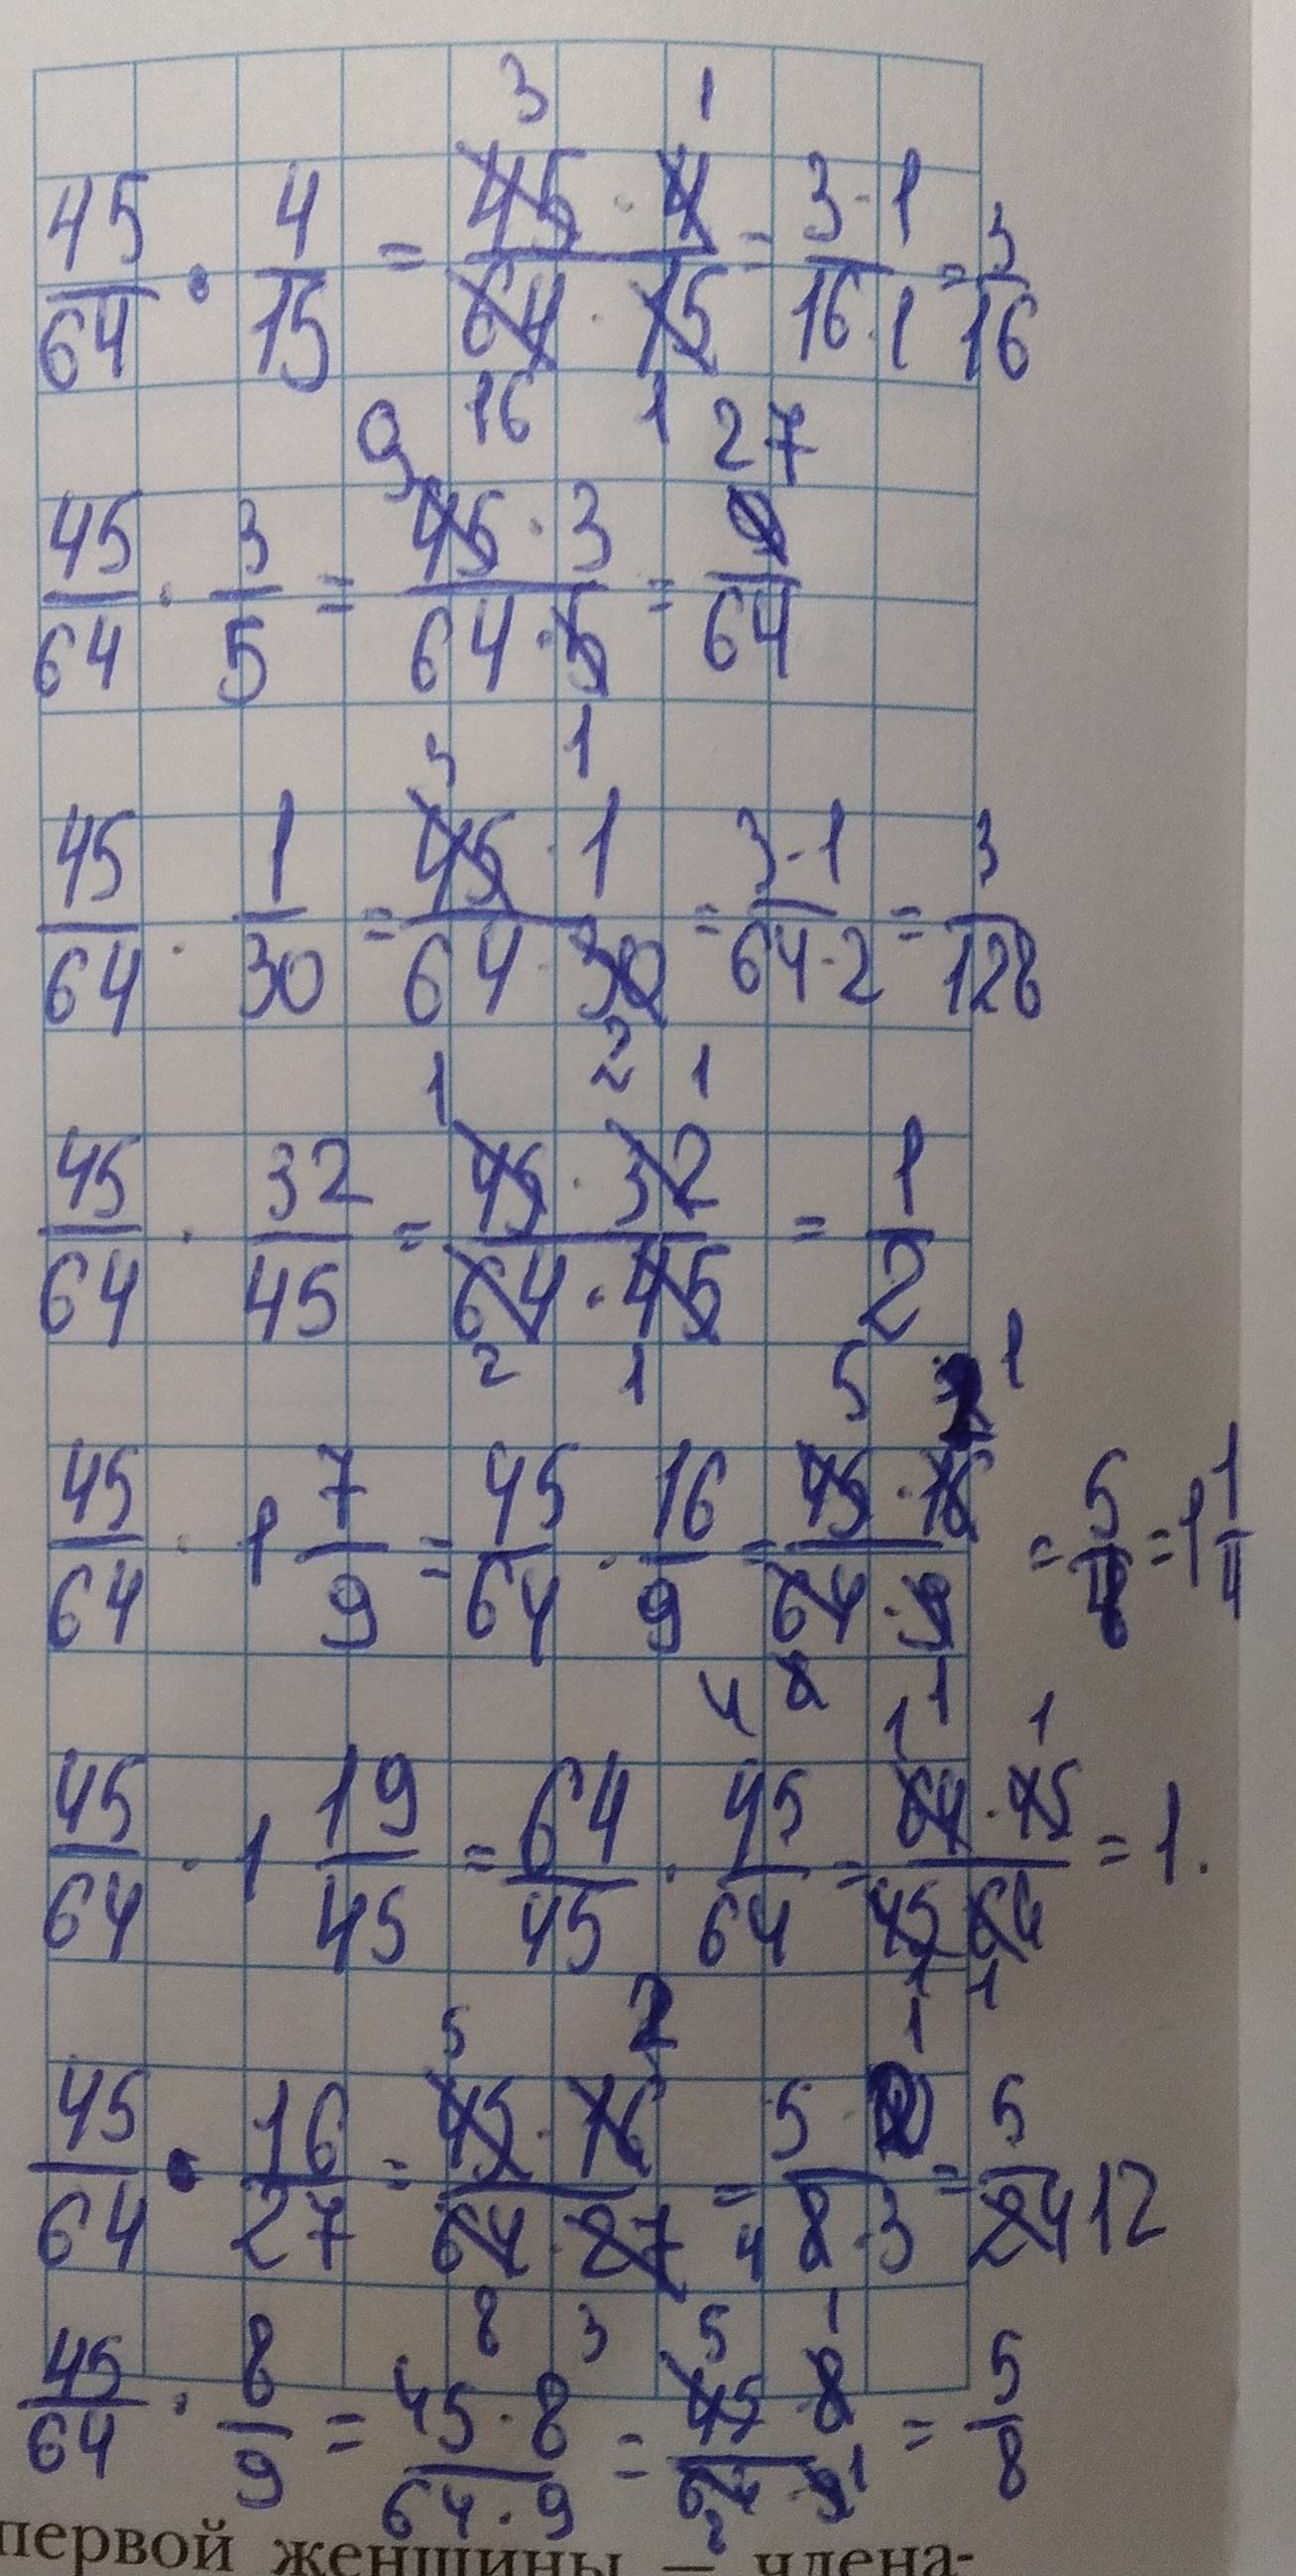 45/64 · 4/15 = 45 · 4/64 · 15 = 3 · 1/16 · 1 = 3/16
45/64 · 3/5 = 45 · 3/64 · 5 = 27/64
45/64 · 1/30 = 45 · 1/64 · 30 = 3 · 1/64 · 2 = 3/128
45/64 · 32/45 = 45 · 32/64 · 45 = 1/2
45/64 · 1 7/9 = 45/64 · 16/9 = 45 · 16/64 · 9 = 5/4 = 1 1/4
45/64 · 1 19/45 = 64/45 · 45/64 = 64 · 45/45 64 = 1.
45/64 · 16/27 = 45 · 16/64 · 27 = 5 · 2/8 · 3 = 5/24 12
45/64 · 8/9 = 45 · 8/64 · 9 = 45 8/64 · 9 = 5/8
первой женщины — члена-